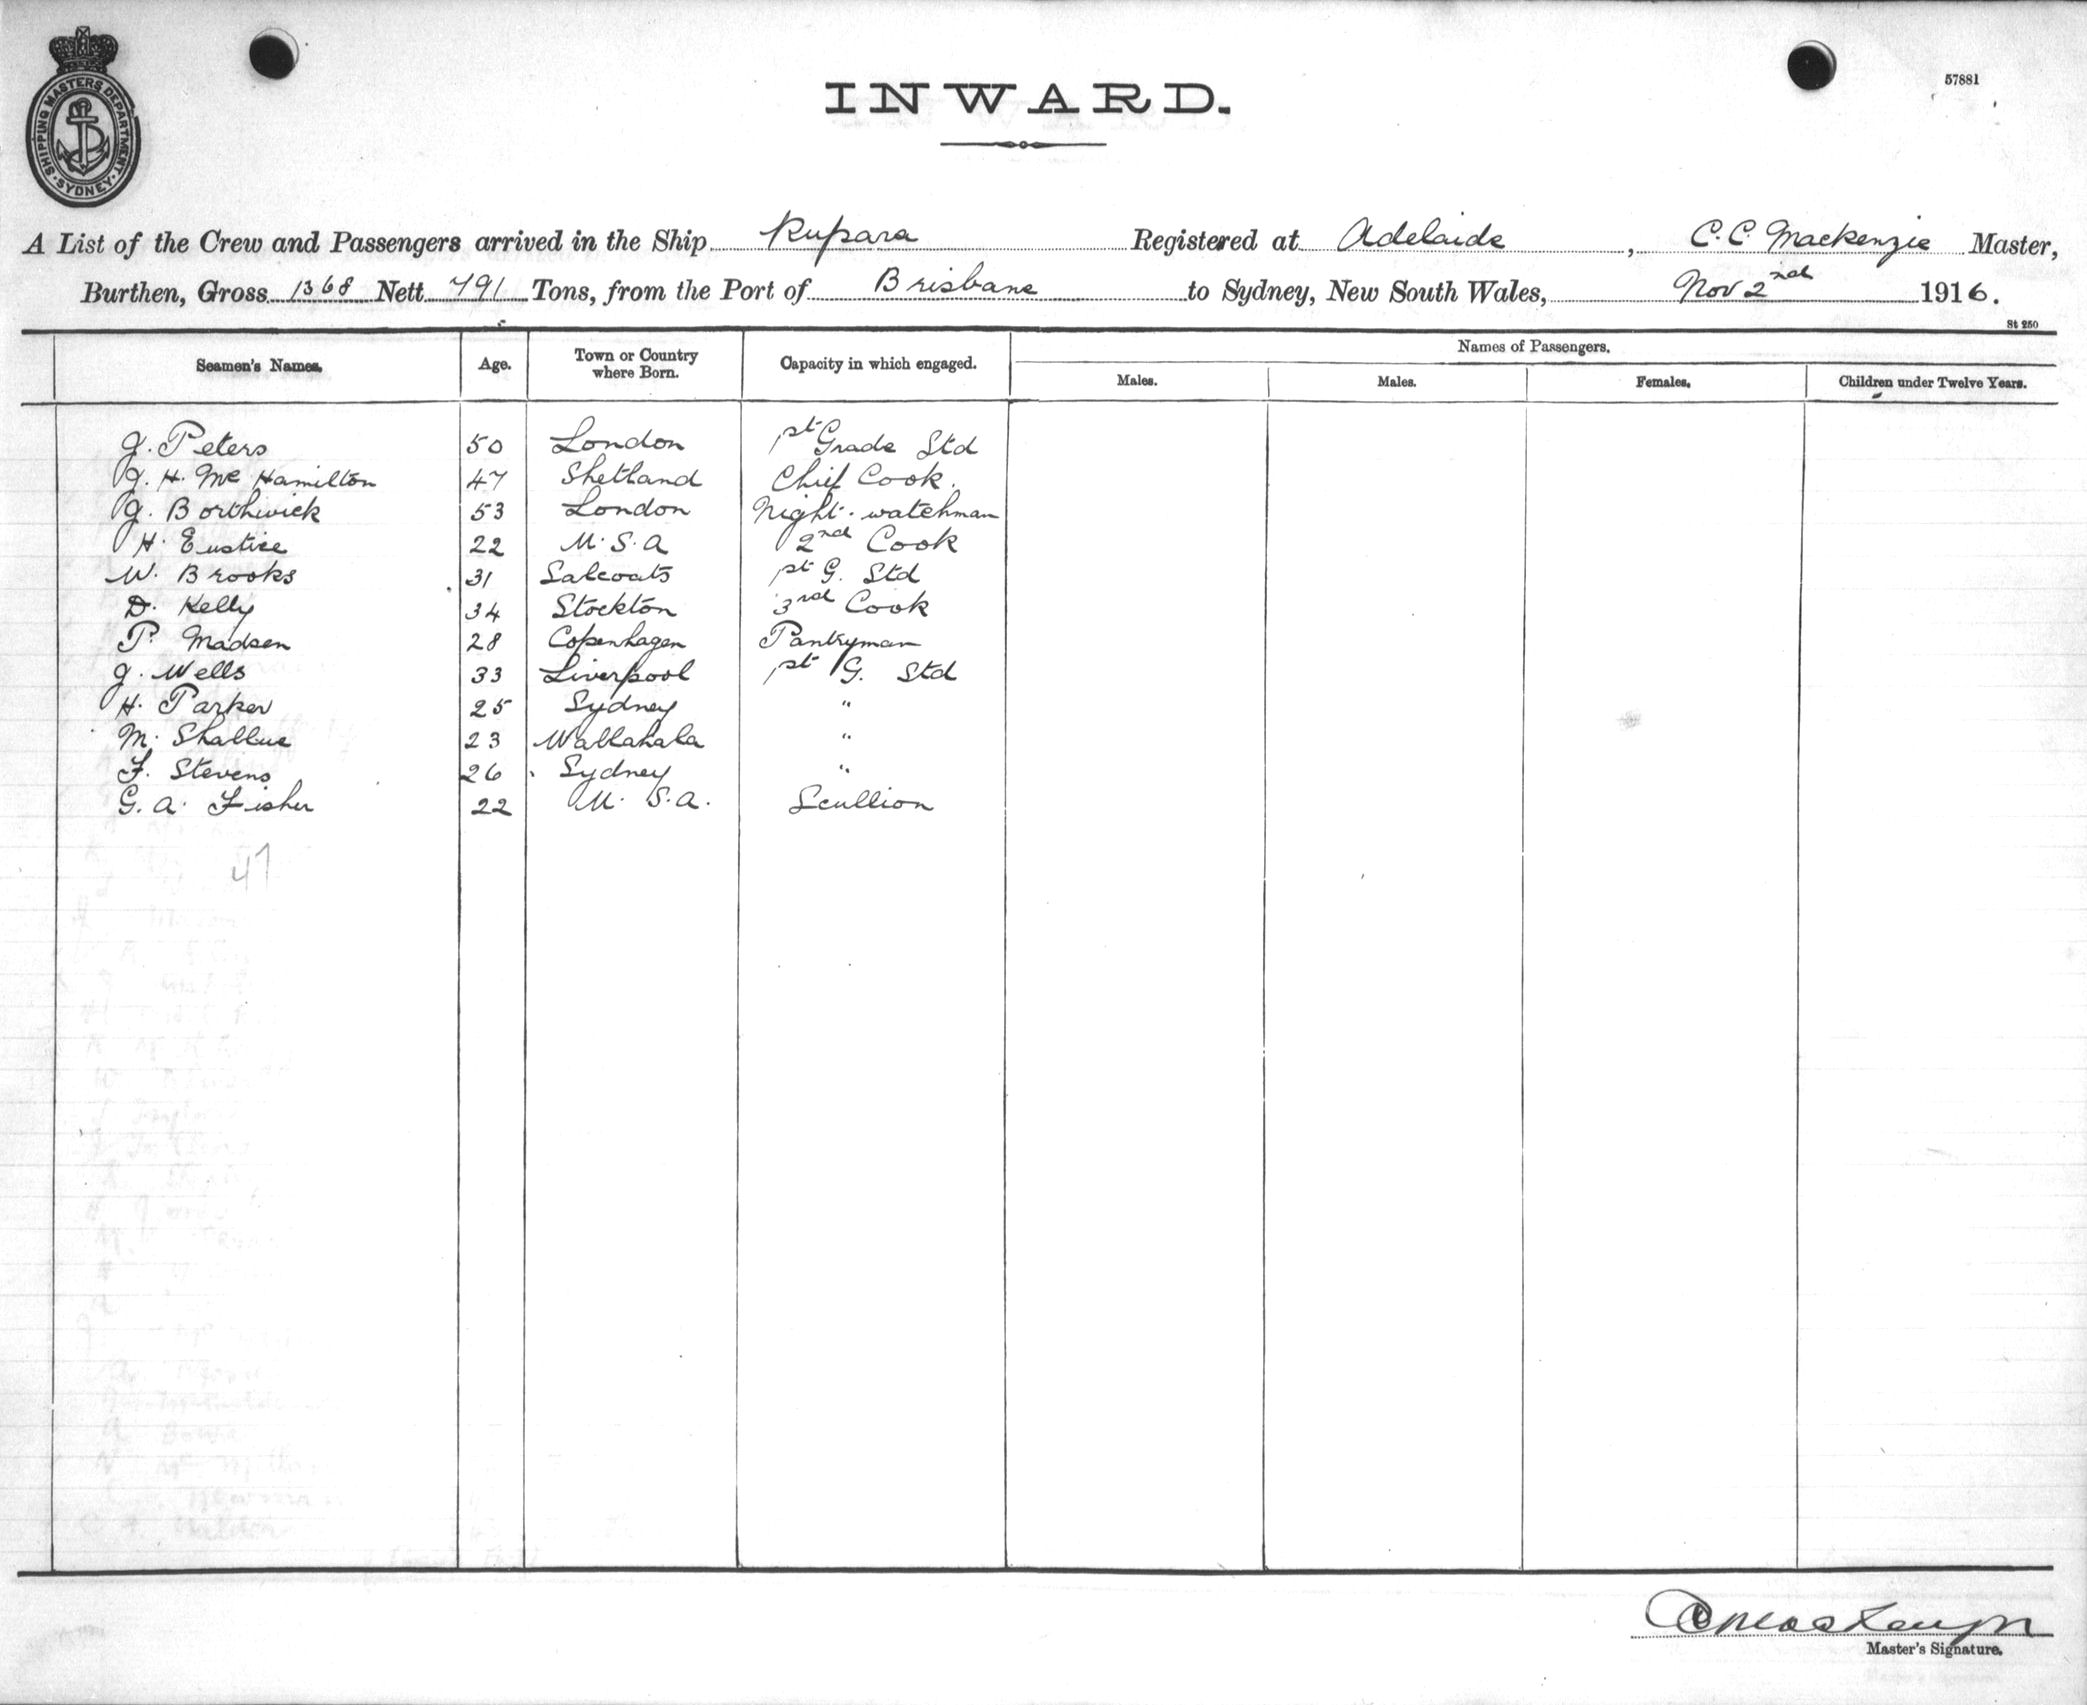 SHIPPING MASTERS DEPARTMENT
SYDNEY
57881
INWARD.
A List of the Crew and Passengers arrived in the Ship Rupara Registered at Adelaide, C. C. Mackenzie Master,
Burthen, Gross 1368 Nett 791 Tons, from the Port of Brisbane to Sydney, New South Wales, Nov 2nd 1916.
St 250
Seamen's Names. Age. Town or Country where Born. Capacity in which engaged. Names of Passengers.
Males. Males. Females. Children under Twelve Years.
J. Peters 50 London 1st Grade Std
J. H. Mc Hamilton 47 Shetland Chief Cook.
J. Borthwick 53 London Night-watchman
H. Eustice 22 U.S.A 2nd Cook
W. Brooks 31 Salcoats 1st G. Std
D. Kelly 34 Stockton 3rd Cook
P. Madsen 28 Copenhagen Pantryman
J. Wells 33 Liverpool 1st G. Std
H. Parker 25 Sydney "
M. Shallue 23 Wallahala "
F. Stevens 26 Sydney "
G. A. Fisher 22 U.S.A. Scullion
47
Master's Signature.